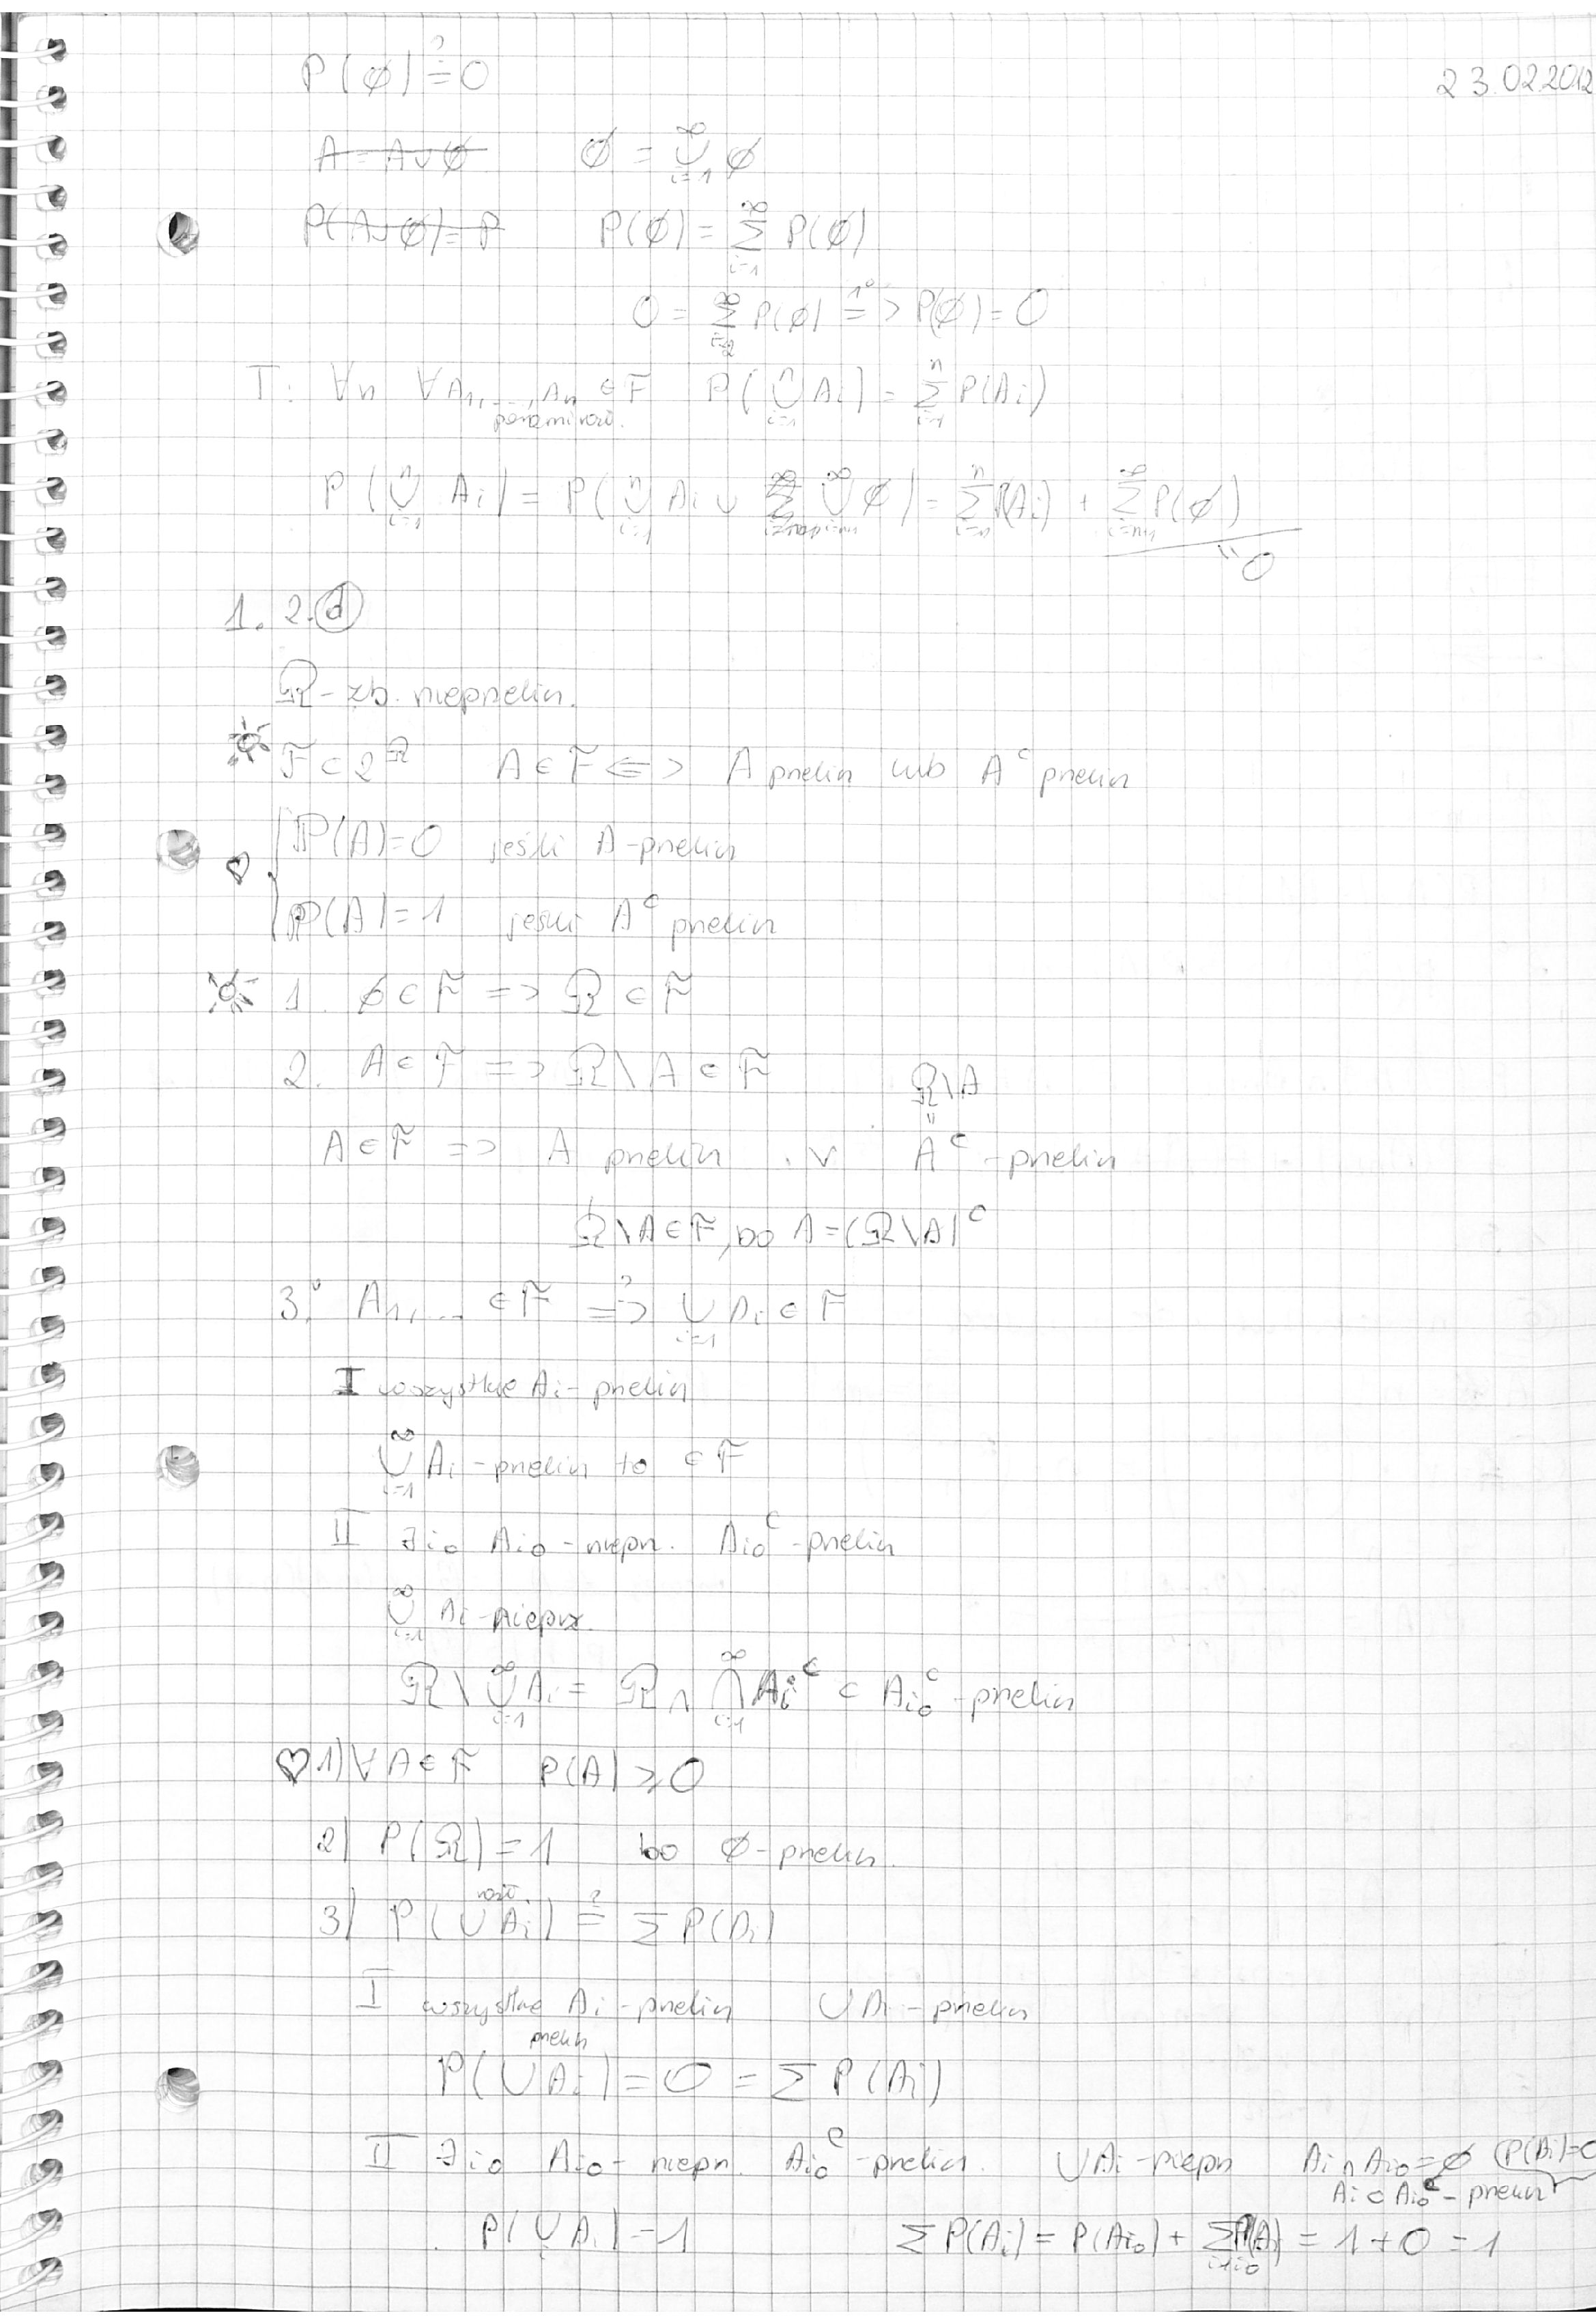 23.02.2012
P(∅) ≟ 0
A = A∪∅   ∅ = ⋃_{i=1}^∞ ∅
P(A∪∅) = P   P(∅) = ∑_{i=1}^∞ P(∅)
0 = ∑_{i=2}^∞ P(∅) =1°=> P(∅) = 0
T: ∀n ∀A₁,...,Aₙ ∈ F   P(⋃_{i=1}^n Ai) = ∑_{i=1}^n P(Ai)
parami rozł.
P(⋃_{i=1}^n Ai) = P(⋃_{i=1}^n Ai ∪ ⋃_{i=n+1}^∞ ∅) = ∑_{i=n}^n P(Ai) + ∑_{i=n+1}^∞ P(∅)
"0
1. 2. d
Ω - zb. nieprzelicz.
F ⊂ 2^Ω   A ∈ F <=> A przelicz lub A^c przelicz
P(A) = 0 jeśli A - przelicz
♡
P(A) = 1 jeśli A^c przelicz
1. ∅ ∈ F => Ω ∈ F
2. A ∈ F => Ω\A ∈ F
Ω\A
"
A ∈ F => A przelicz ∨ A^c - przelicz
Ω\A ∈ F, bo A = (Ω\A)^c
3. A₁,... ∈ F ?=> ⋃_{i=1} Ai ∈ F
I wszystkie Ai - przelicz
⋃_{i=1}^∞ Ai - przelicz to ∈ F
II ∃i₀ Ai₀ - nieprz. Ai₀^c - przelicz
⋃_{i=1}^∞ Ai - nieprz.
Ω \ ⋃_{i=1}^∞ Ai = Ω ∩ ⋂_{i=1}^∞ Ai^c ⊂ Ai₀^c - przelicz
♡ 1) ∀A∈F   P(A) ≥ 0
2) P(Ω) = 1   bo ∅ - przelicz.
rozł.
3) P(⋃Ai) ≟ ∑P(Ai)
I wszystkie Ai - przelicz   ⋃Ai - przelicz
przelicz
P(⋃Ai) = 0 = ∑P(Ai)
II ∃i₀ Ai₀ - nieprz. Ai₀^c - przelicz.   ⋃Ai - nieprz   Ai∩Ai₀ = ∅ (P(Ai)=0
Ai ⊂ Ai₀^c - przelicz
P(⋃Ai) = 1   ∑P(Ai) = P(Ai₀) + ∑_{i≠i₀} P(Ai) = 1 + 0 = 1